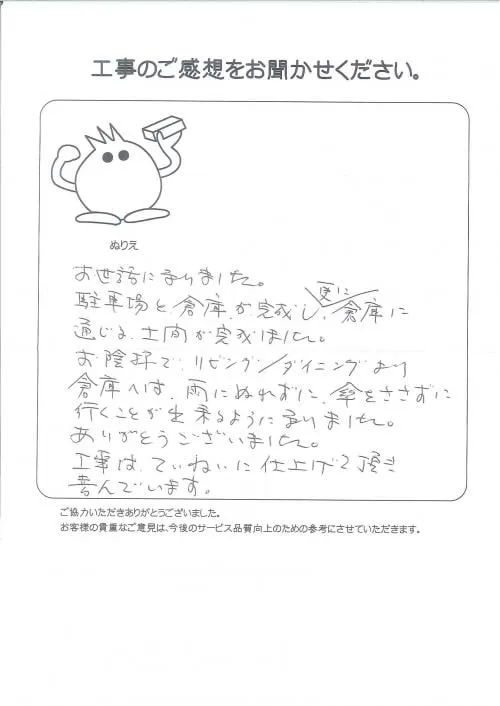 工事のご感想をお聞かせください。
ぬりえ
お世話になりました。
駐車場と倉庫が完成し、更に倉庫に
通じる、土間が完成しました。
お陰様で、リビング/ダイニングより
倉庫へは、雨にぬれずに、傘をささずに
行くことが出来るようになりました。
ありがとうございました。
工事は、ていねいに仕上げて頂き
喜んでいます。
ご協力いただきありがとうございました。
お客様の貴重なご意見は、今後のサービス品質向上のための参考にさせていただきます。